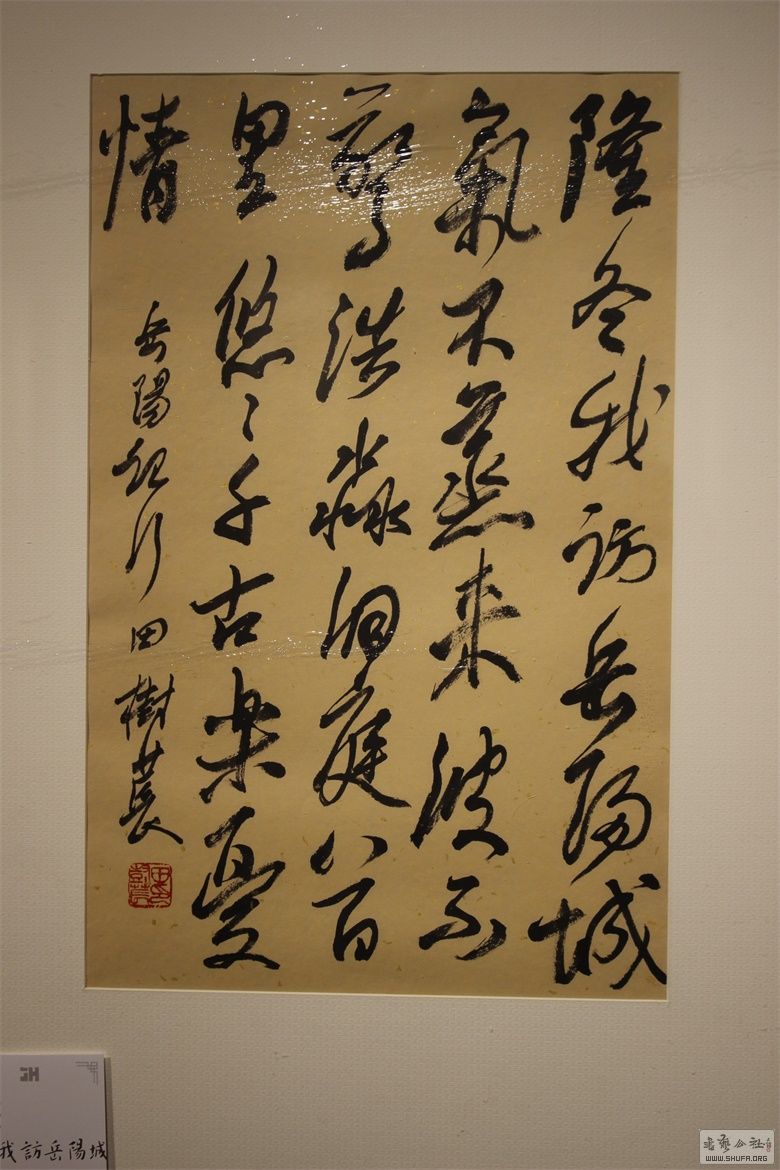 隆冬我訪岳陽城
氣不蒸来波不
驚浩淼洞庭八百
里悠〻千古楽憂
情
岳陽紀行田樹萇
我訪岳陽城
書藝公社
WWW.SHUFA.ORG